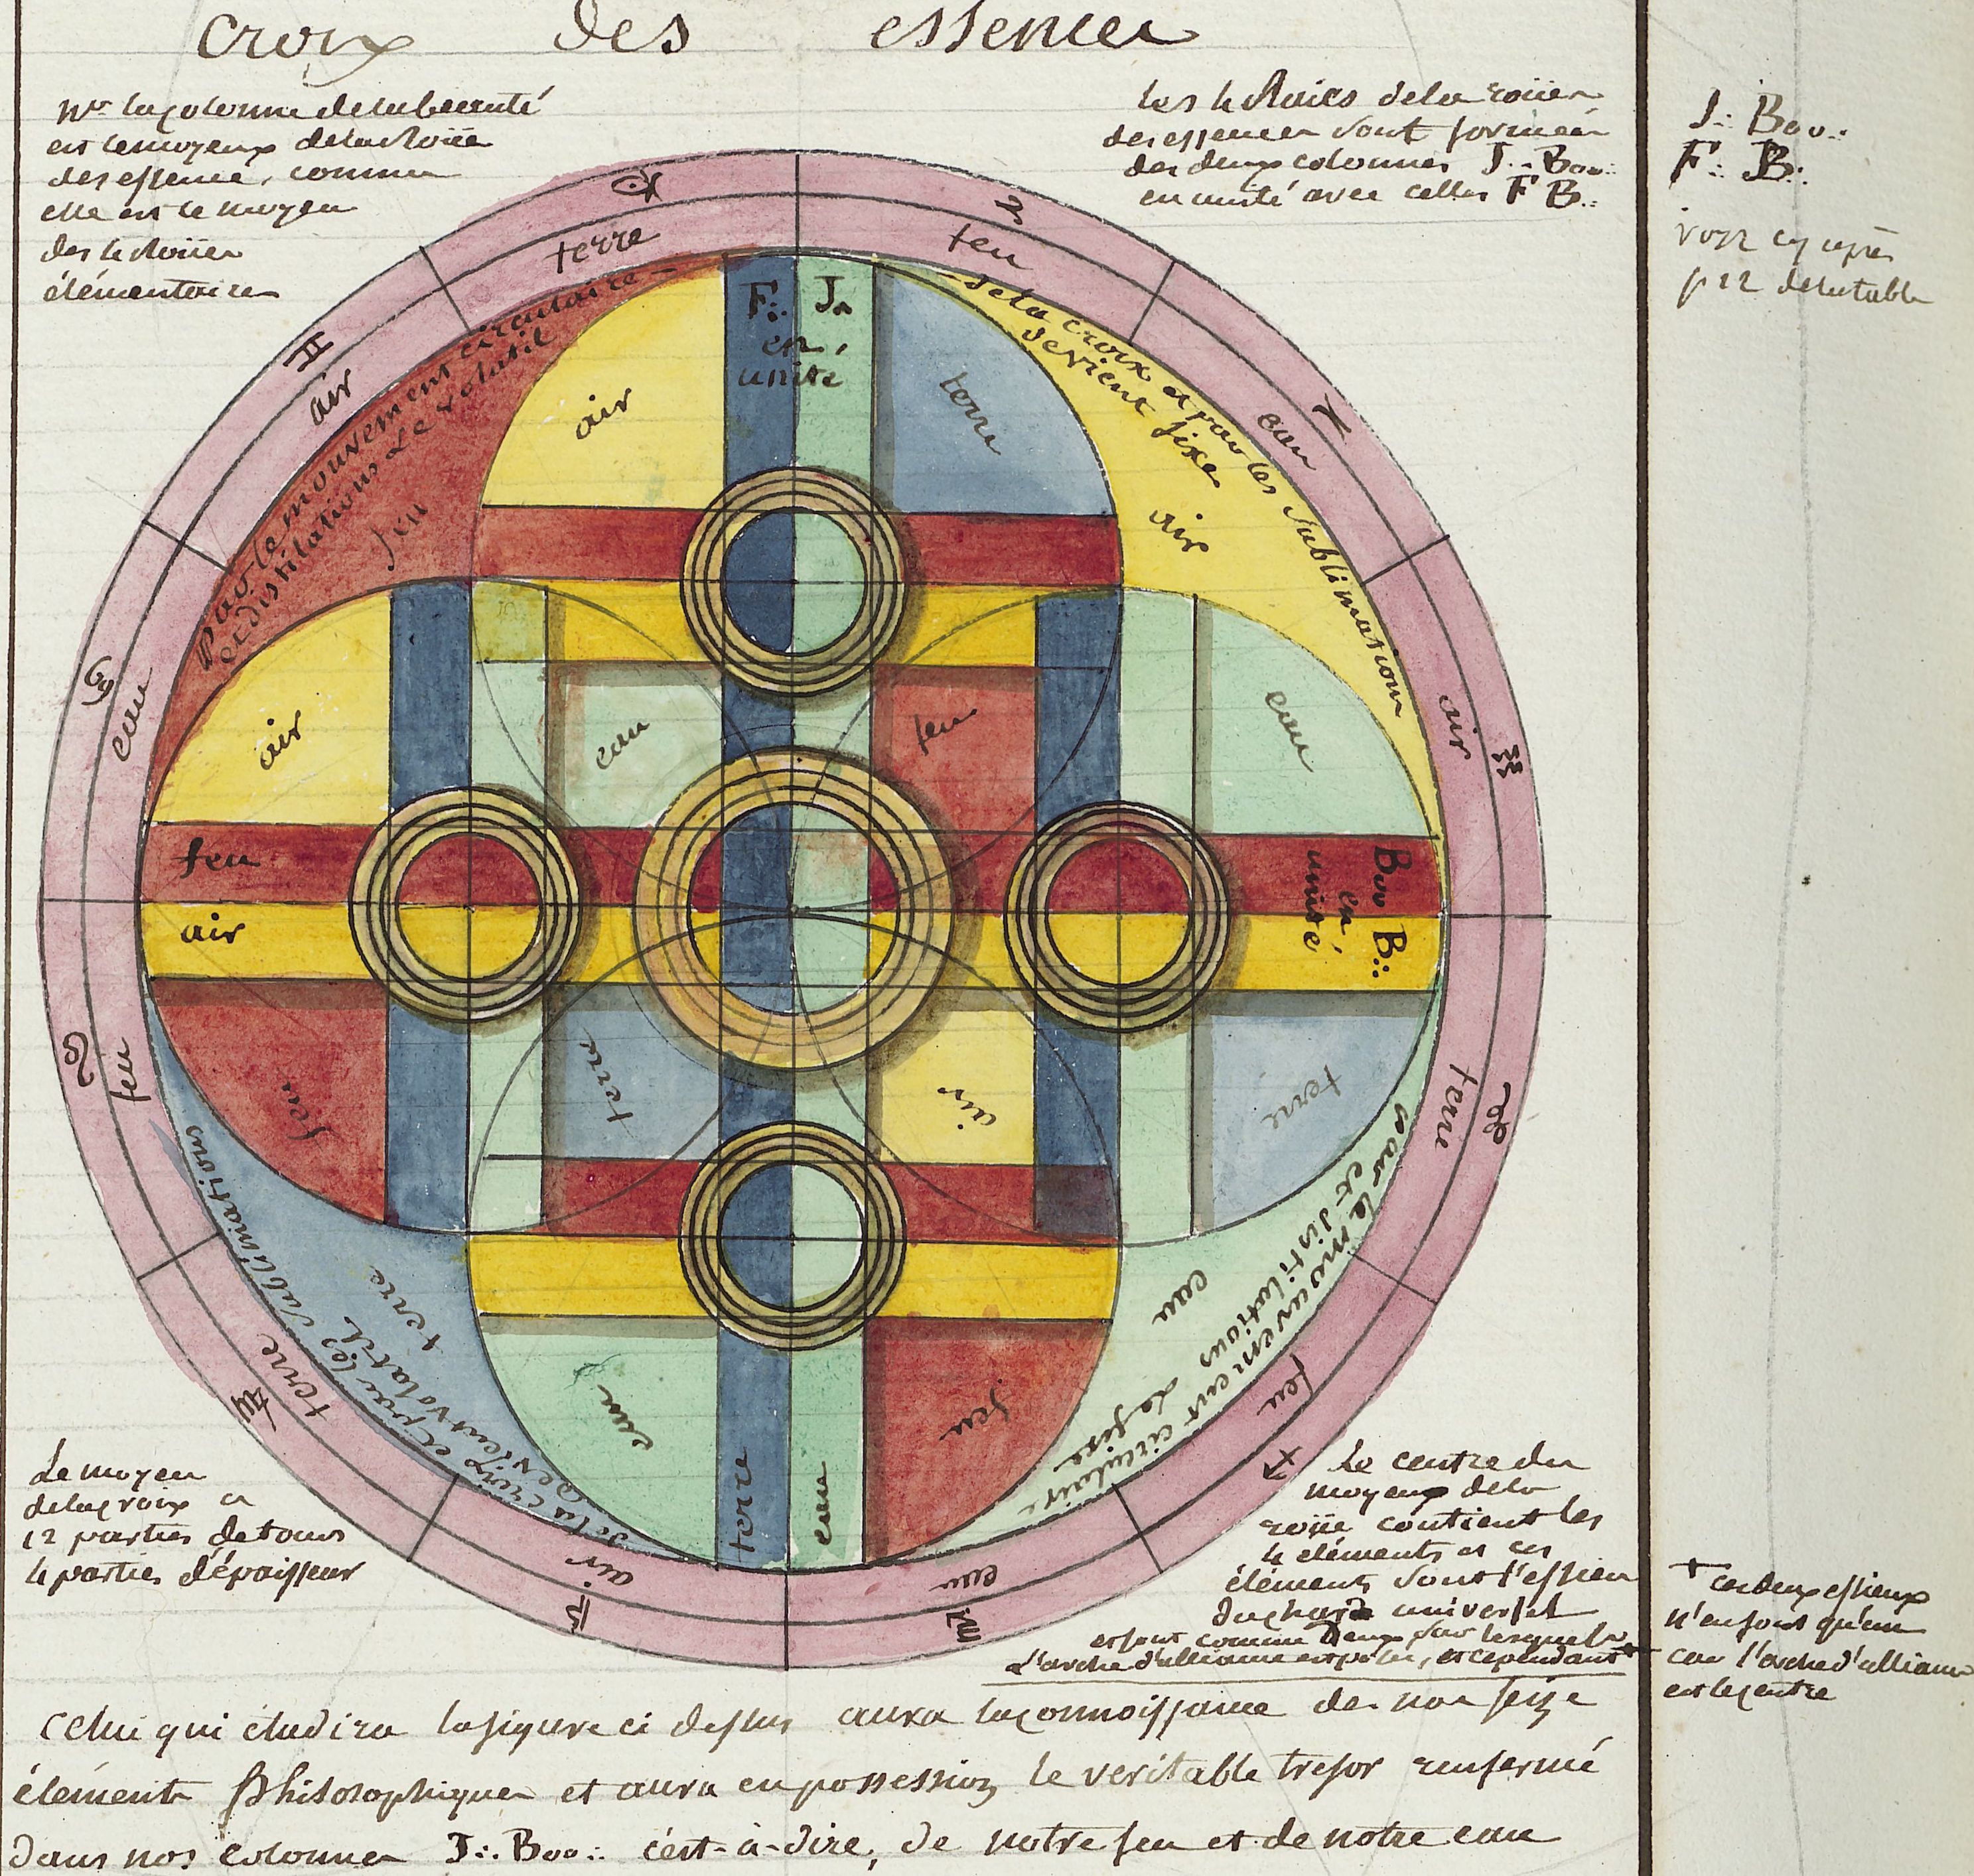 croix des essences
nta la colonne de la beauté
est le moyeux de la Roüe
des essence, comme
elle est le moyen
des 4 Roües
élémentaires
les 4 Raies de la roüe
des essences sont formées
des deux colonnes J∴ Boo∴
en unité avec celles F B∴
J∴ Boo∴
F∴ B∴
voyez cy après
p 12 de la table
♉
terre
♈
feu
♓
eau
♒
air
♑
terre
♐
feu
♏
eau
♎
air
♍
terre
♌
feu
♋
eau
♊
air
Par le mouvement circulaire
et distilations Le volatil
feu
de la croix et par les sublimations
devient fixe
air
air
F∴ J∴
en
unité
terre
air
eau
feu
eau
feu
air
Boo B∴
en
unité
feu
terre
air
terre
par le mouvement circulaire
et distilations de fixe
eau
de la croix et par les sublimations
devient volatil
terre
eau
terre
eau
feu
Le moyeu
de la croix a
12 parties de tour
4 parties d'épaisseur
Le centre du
moyeux de la
roüe contient les
4 eléments et ces
éléments sont l'essieu
du char universel
et sont comme deux sur lesquels
L'arche d'alliance est posée, et cependant +
+ ces deux essieux
n'en font qu'un
car l'arche d'alliance
est le centre
Celui qui étudira la figure ci dessus aura la connoissance de nos seize
élements philosophiques et aura en possession le veritable tresor renfermé
dans nos colonnes J∴ Boo∴ c'est-à-dire, de notre feu et de notre eau